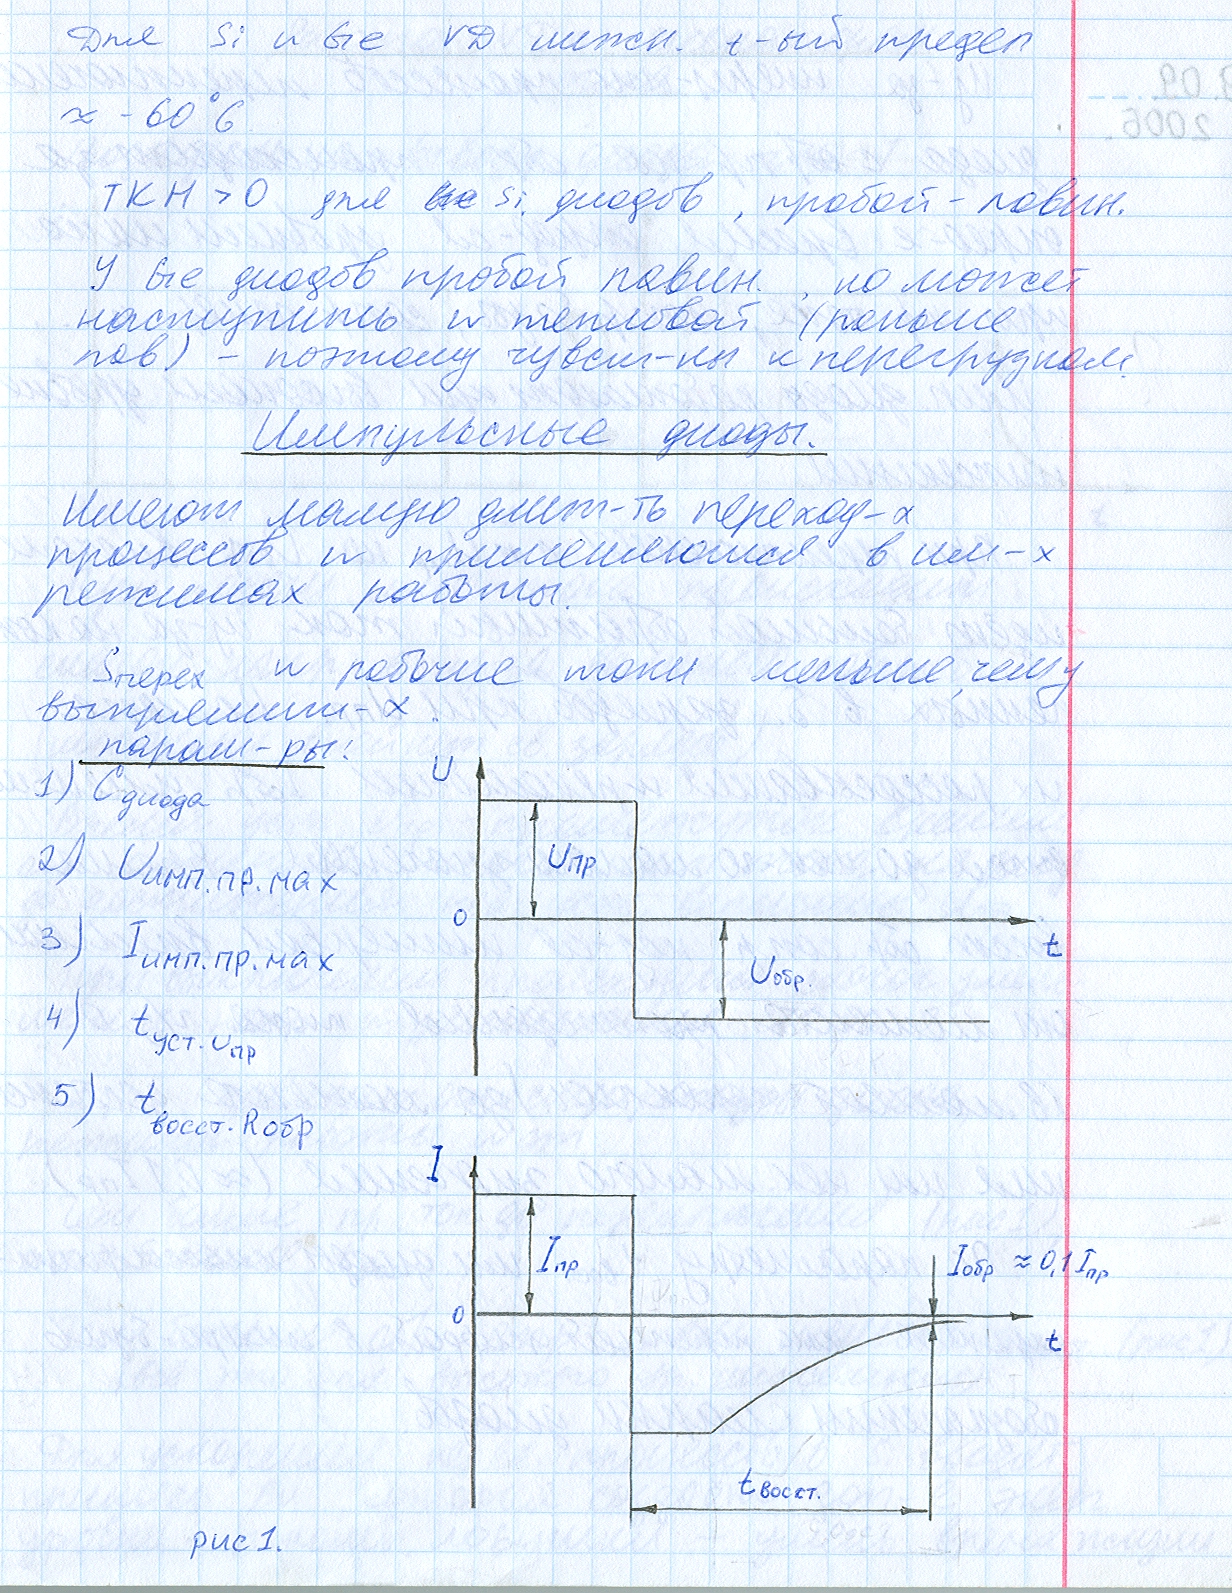 Для Si и Ge VD нижн. t-ый предел
≈ -60°C
ТКН > 0 для Si диодов, пробой - лавин.
У Ge диодов пробой лавин., но может
наступить и тепловой (раньше
лав) - поэтому чувст-ны к перегрузкам.
Импульсные диоды.
Имеют малую длит-ть переход-х
процессов и применяются в им-х
режимах работы.
Sперех и рабочие токи меньше, чем у
выпрямит-х.
парам-ры:
1) Сдиода
2) Uимп.пр.мах
3) Iимп.пр.мах
4) tуст.Uпр
5) tвосст.Rобр
U
Uпр
0
t
Uобр.
I
Iпр
Iобр ≈ 0,1 Iпр
0
t
tвосст.
рис 1.